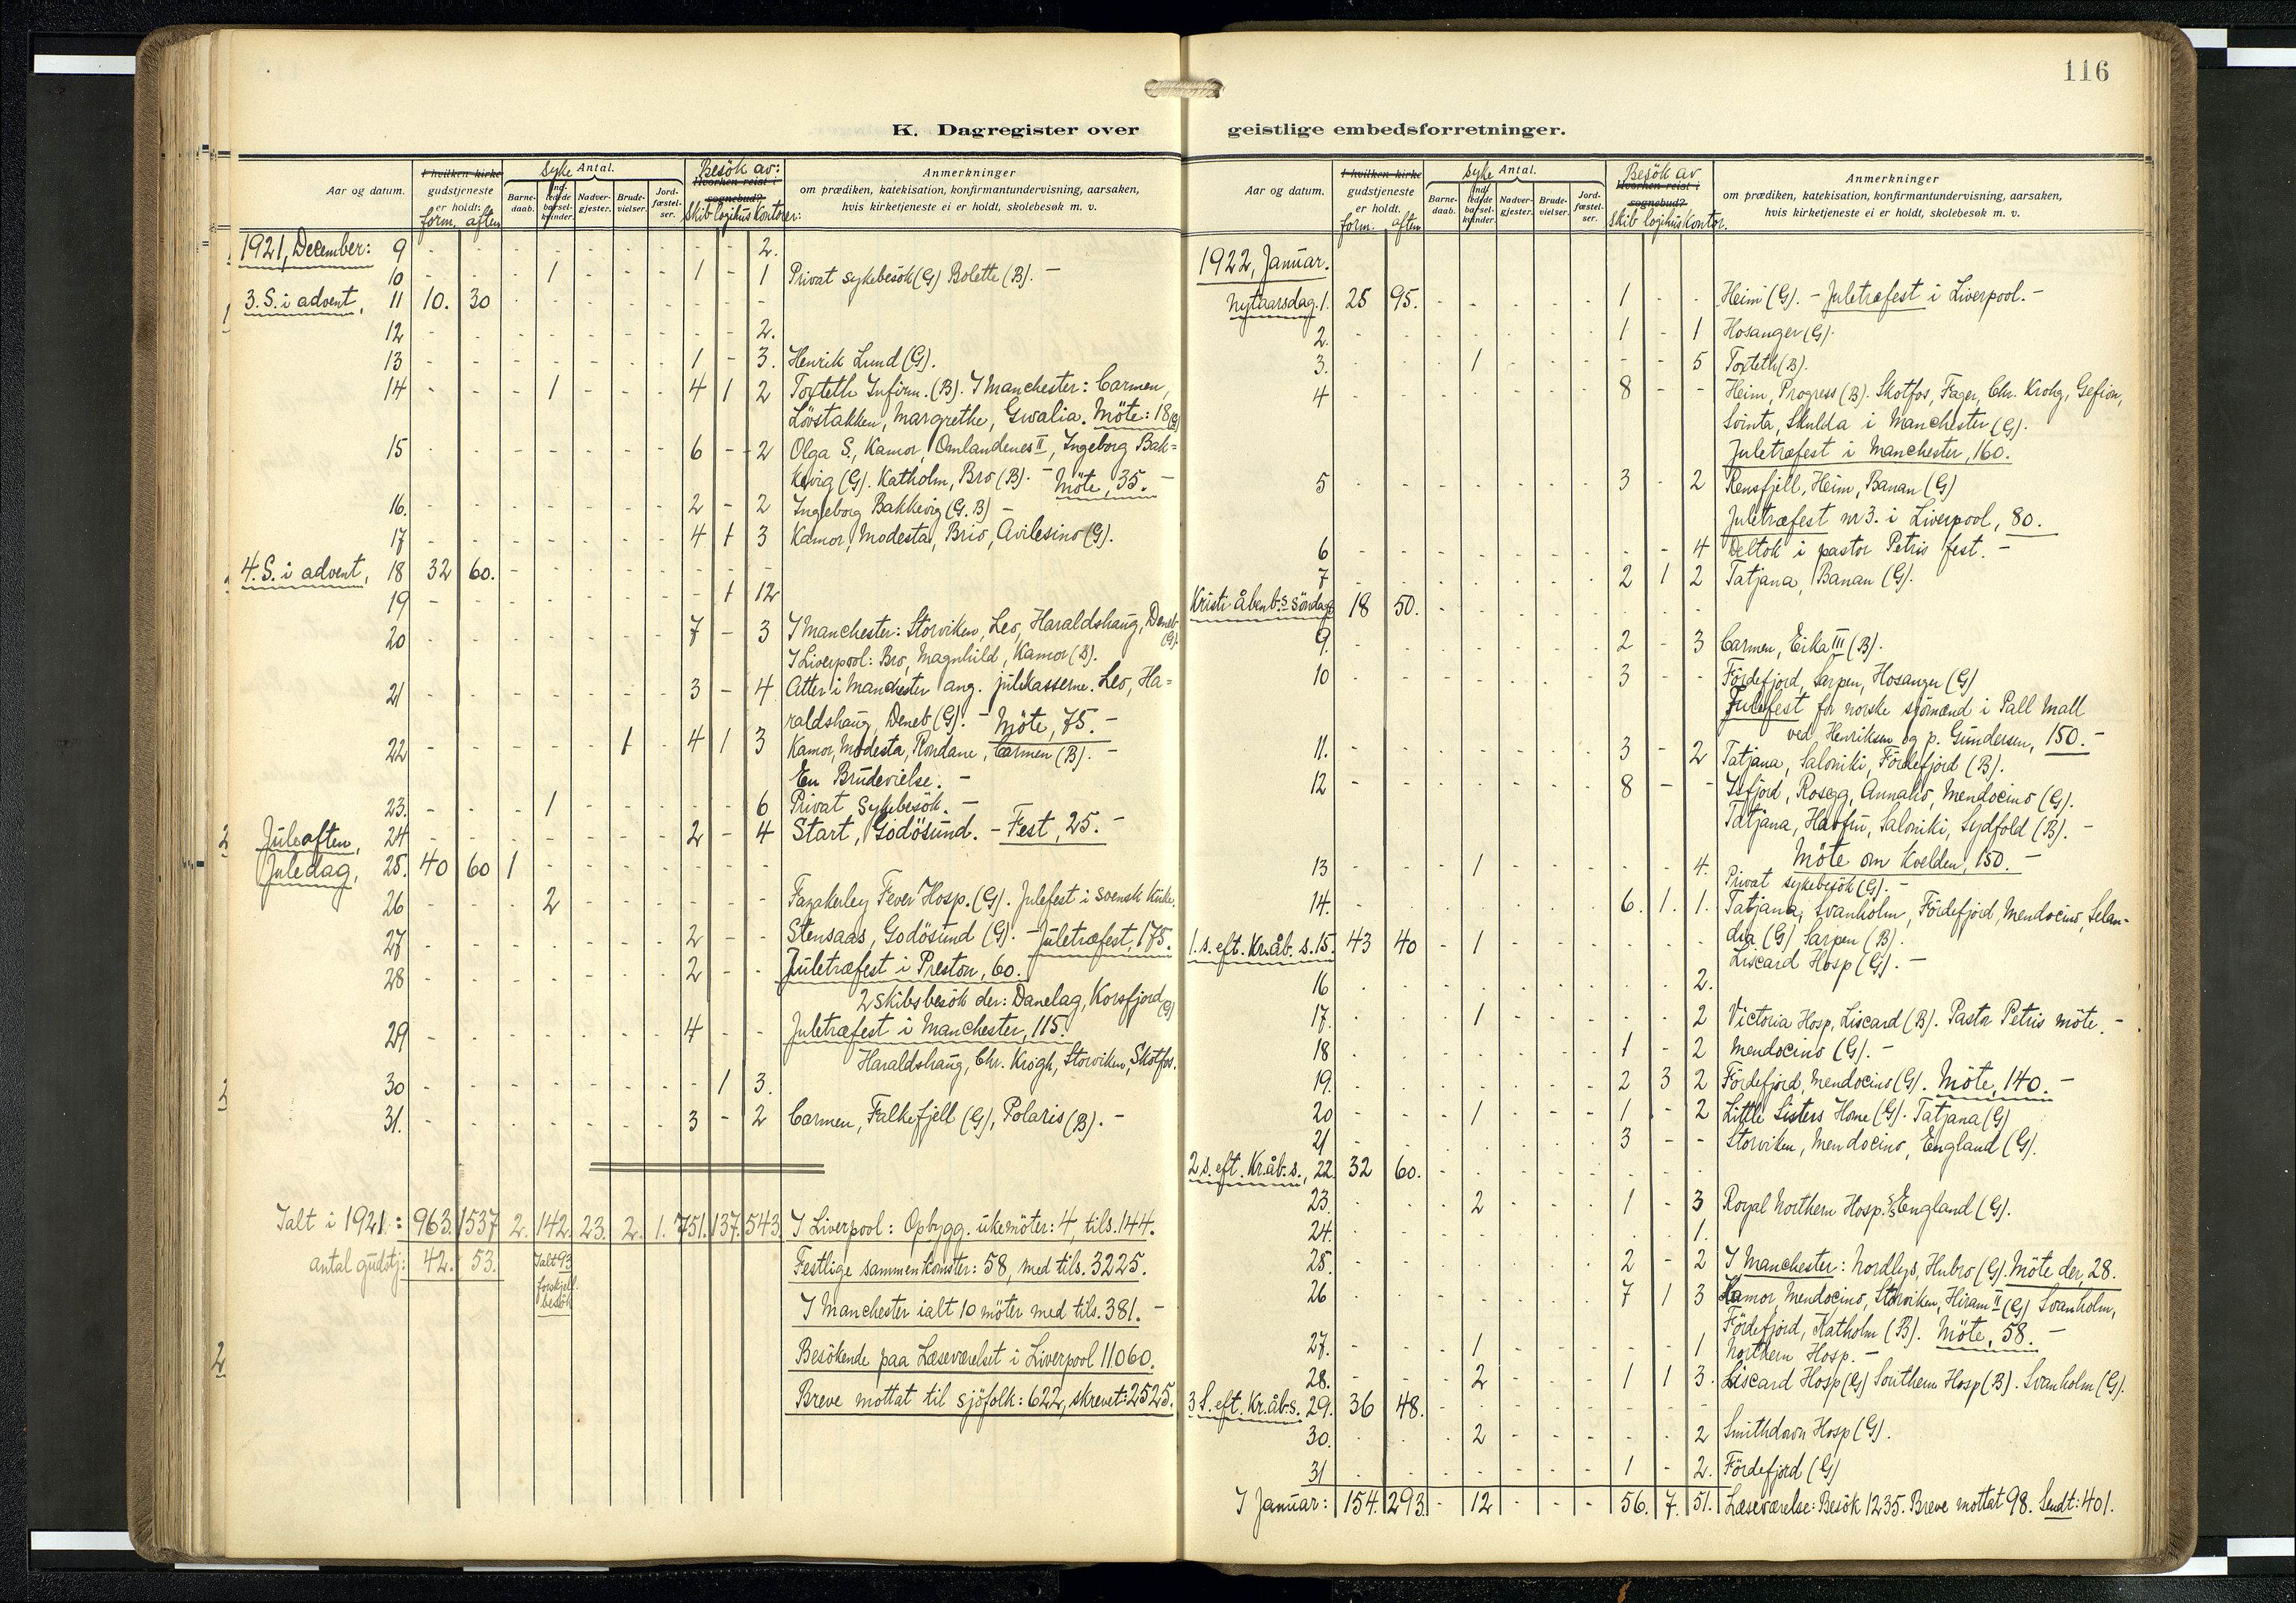 116
K. Dagregister over geistlige embedsforretninger.
Aar og datum. I hvilken kirke gudstjeneste er holdt: form. aften Syke Antal. Barne-daab. Ind-ledede barsel-kvinder. Nadver-gjester. Brude-vielser. Jord-fæstel-ser. Besök av: Hvorhen reist i sognebud? Skib Logihus Kontor: Anmerkninger om prædiken, katekisation, konfirmantundervisning, aarsaken, hvis kirketjeneste ei er holdt, skolebesøk m. v.
1921, December: 9 - - - - - - - - - 2.
10 - - - 1 - - - 1 - 1 Privat sykebesök (G) Bolette (B). -
3. S. i advent, 11 10. 30 - - - - - - - -
12 - - - - - - - - - 2.
13 - - - - - - - 1 - 3. Henrik Lund (G).
14 - - - 1 - - - 4 1 2 Toxteth Infirm. (B). I Manchester: Carmen,
Lövstakken, Margrethe, Gwalia. Möte: 18 (G)
15 - - - - - - - 6 - 2 Olga S., Kamor, Omlandenes II, Ingeborg Bak=
kevig (G). Katholm, Bro (B). - Möte, 35. -
16. - - - - - - - 2 - 2 Ingeborg Bakkevig (G. B) -
17 - - - - - - - 4 1 3 Kamor, Modesta, Brio, Avilesino (G).
4. S. i advent, 18 32 60. - - - - - - - -
19 - - - - - - - - 1 12
20 - - - - - - - 7 - 3 I Manchester: Storviken, Leo, Haraldshaug, Deneb (G).
I Liverpool: Bro, Magnhild, Kamor (B).
21 - - - - - - - 3 - 4 Atter i Manchester ang. julekasserne. Leo, Ha=
raldshaug, Deneb (G). - Möte, 75. -
22 - - - - - 1 - 4 1 3 Kamor, Modesta, Rondane, Carmen (B). -
En Brudevielse. -
23. - - - 1 - - - - - 6 Privat Sykebesök. -
Juleaften, 24 - - - - - - - 2 - 4 Start, Godösund. - Fest, 25. -
Juledag, 25. 40 60 1
26 - - - 2 - - - - - - Fazakerley Fever Hosp. (G). Julefest i svensk kirke.
27 - - - - - - - 2 - - Stensaas, Godösund (G). - Juletræfest, 175.
28 - - - - - - - 2 - - Juletræfest i Preston, 60.
2 skibsbesök der: Danelag, Korsfjord (G)
29 - - - - - - - 4 - - Juletræfest i Manchester, 115.
Haraldshaug, Chr. Krogh, Storviken, Skotfos.
30 - - - - - - - - 1 3.
31. - - - - - - - 3 - 2 Carmen, Falkefjell (G), Polaris (B). -
Ialt i 1921: 963. 1537 2. 142. 23. 2. 1. 751. 137. 543 I Liverpool: Opbygg. ukemöter: 4, tils. 144.
antal gudstj: 42. 53. Ialt 93 forskjell. besök Festlige sammenkomster: 58, med tils. 3225.
I Manchester ialt 10 möter med tils. 381. -
Besökende paa Læseværelset i Liverpool 11060.
Breve mottat til sjöfolk: 622, skrevet: 2525.
Aar og datum. I hvilken kirke gudstjeneste er holdt. form. aften Syke Antal. Barne-daab. Ind-ledede barsel-kvinder. Nadver-gjester. Brude-vielser. Jord-fæstel-ser. Besök av Hvorhen reist i sognebud? Skib Logihus Kontor. Anmerkninger om prædiken, katekisation, konfirmantundervisning, aarsaken, hvis kirketjeneste ei er holdt, skolebesøk m. v.
1922, Januar.
Nytaarsdag. 1. 25 95. - - - - - 1 - - Heim (G). - Juletræfest i Liverpool. -
2. - - - - - - - 1 - 1 Hosanger (G).
3. - - - 1 - - - - - 5 Toxteth (B).
4 - - - - - - - 8 - - Heim, Progress (B). Skotfos, Fager, Chr. Krohg, Gefion,
Svinta, Skulda i Manchester (G).
Juletræfest i Manchester, 160.
5 - - - - - - - 3 - 2 Rensfjell, Heim, Banan (G)
Juletræfest nr 3. i Liverpool, 80.
6 - - - - - - - - - 4 Deltok i pastor Petris fest. -
7 - - - - - - - 2 1 2 Tatjana, Banan (G).
Kristi åbenb.s söndag 18 50. - - - - - - - -
9. - - - - - - - 2 - 3 Carmen, Erika III (B).
10 - - - - - - - 3 - - Fördefjord, Sarpen, Hosanger (G)
Julefest for norske sjömænd i Pall Mall
ved Henriksen og p. Gundersen, 150. -
11. - - - - - - - 3 - 2 Tatjana, Saloniki, Fördefjord (B).
12 - - - - - - - 8 - - Isfjord, Rosegg, Annaho, Mendocino (G).
Tatjana, Havfru, Saloniki, Sydfold (B). -
Möte om kvelden, 150. -
13 - - - 1 - - - - - 4. Privat sykebesök (G). -
14. - - - - - - - 6. 1. 1. Tatjana, Svanholm, Fördefjord, Mendocino, Selan-
dia (G) Sarpen (B).
1. s. eft. Kr.åb. s. 15. 43 40 - 1 - - - - - - Liscard Hosp (G). -
16 - - - - - - - - - 2.
17. - - - 1 - - - - - 2 Victoria Hosp, Liscard (B). Pastor Petris möte. -
18 - - - - - - - 1 - 2 Mendocino (G). -
19. - - - - - - - 2 3 2 Fördefjord, Mendocino (G). Möte, 140. -
20 - - - 1 - - - 1 - 2 Little Sisters Home (G). Tatjana (G)
21 - - - - - - - 3 - - Storviken, Mendocino, England (G).
2 s. eft. Kr.åb. s., 22 32 60. - - - - - - - -
23. - - - 2 - - - 1 - 3 Royal Northern Hosp. England (G).
24. - - - - - - - - - 1.
25. - - - - - - - 2 - 2 I Manchester: Nordlys, Hubro (G). Möte der, 28.
26 - - - - - - - 7 1 3 Kamor, Mendocino, Storviken, Hiram II (G) Svanholm,
Fördefjord, Katholm (B). Möte, 58. -
27. - - - 1 - - - - - 1 Northern Hosp. -
28. - - - 2 - - - 1 1 3. Liscard Hosp (G) Southern Hosp (B). Svanholm (G).
3 S. eft. Kr.åb.s. 29. 36 48. - - - - - - - -
30. - - - 2 - - - - - 2 Smithdown Hosp (G).
31 - - - - - - - 1 - 2. Fördefjord (G)
I Januar: 154. 293. - 12 - - - 56. 7. 51. Læseværelse: Besök 1235. Breve mottat 98. Sendt: 401.